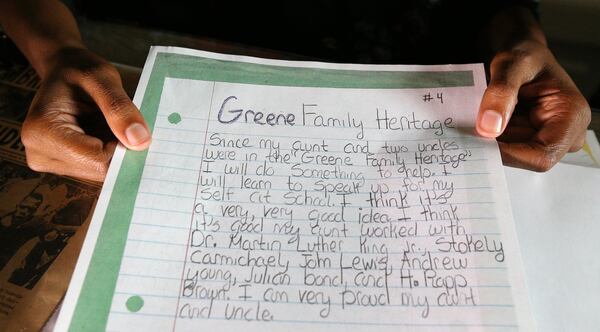 #4
Greene Family Heritage
Since my aunt and two uncles
were in the "Greene Family Heritage"
I will do Something to help. I
will learn to speak up for my
Self at School. I think it's
a very, very good idea. I think
it's good my aunt worked with
Dr. Martin Luther King Jr., Stokely
Carmichael, John Lewis, Andrew
young, Julian bond, and H. Rapp
Brown. I am very proud my aunt
and uncle.